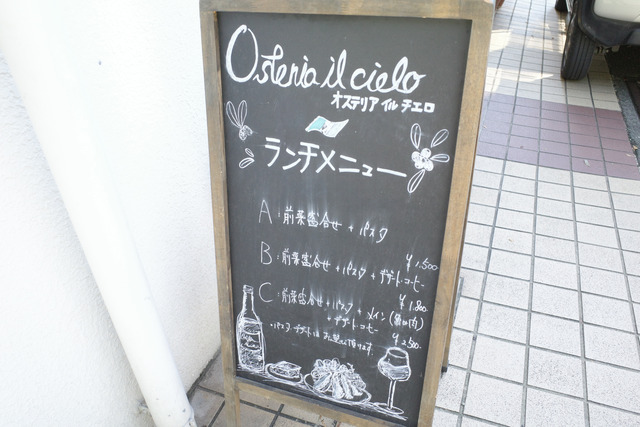 Osteria il cielo
オステリア イル チエロ
ランチメニュー
A:前菜盛合せ + パスタ
¥1.500
B:前菜盛合せ + パスタ + デザート・コーヒー
¥1.800
C:前菜盛合せ + パスタ + メイン(魚or肉)
+ デザート・コーヒー
¥2.500